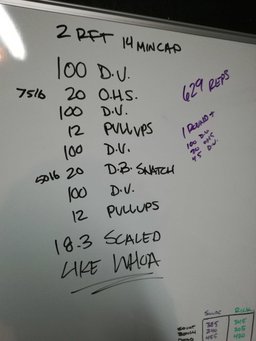 2 RFT 14 MIN CAP
100 D.U.
75lb 20 O.H.S.
100 D.U.
12 PULLUPS
100 D.U.
50lb 20 D.B. SNATCH
100 D.U.
12 PULLUPS
18.3 SCALED
LIKE WHOA
629 REPS
1 ROUND +
100 D.U.
20 OHS
45 D.U.